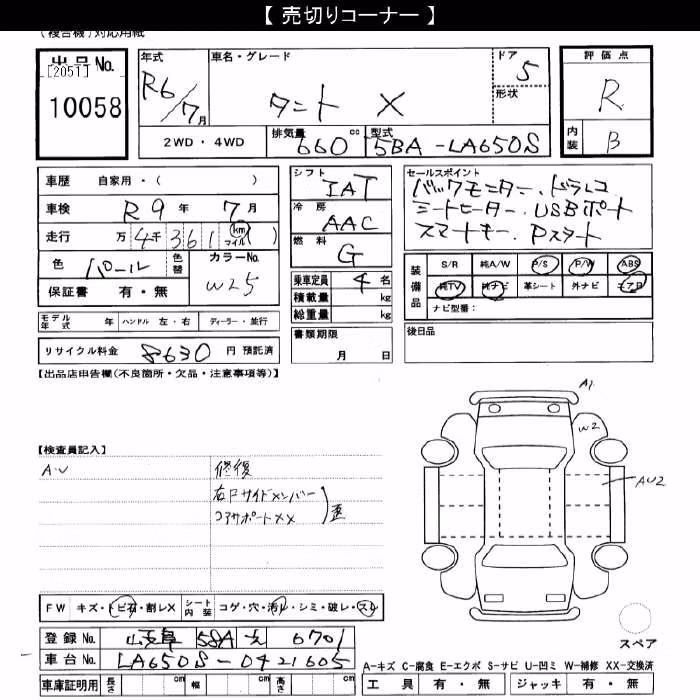 【 売切りコーナー 】
(複合機)対応用紙
出品No.
[2051]
10058
年式
R6/7月
車名・グレード
タント X
ドア
5
形状
評価点
R
内装
B
2WD・4WD
排気量
660 cc
型式
5BA-LA650S
車歴 自家用・( )
車検 R9年 7月
走行 万4千361 (km マイル)
色 パール 色替 カラーNo.
W25
保証書 有・無
モデル年式 年 ハンドル 左・右 ディーラー・並行
リサイクル料金 8630 円 預託済
シフト
IAT
冷房
AAC
燃料
G
乗車定員 4名
積載量 kg
総重量 kg
書類期限
月 日
セールスポイント
バックモニター・ドラレコ
シートヒーター・USBポート
スマートキー・Pスタート
装備品
S/R 純A/W P/S P/W ABS
純TV 純ナビ 革シート 外ナビ エアB
ナビ型番:
後日品
【出品店申告欄(不良箇所・欠品・注意事項等)】
【検査員記入】
A・U
修復
右Fサイドメンバー
コアサポートXX
歪
A1
W2
AU2
FW キズ・トビ石・割レX シート内装 コゲ・穴・汚レ・シミ・破レ・スレ
スペア
登録No. 岐阜 58A 6701
車台No. LA650S-0421605
A-キズ C-腐食 E-エクボ S-サビ U-凹ミ W-補修 XX-交換済
車庫証明用 長さ cm 幅 cm 高さ cm
工具 有・無 ジャッキ 有・無